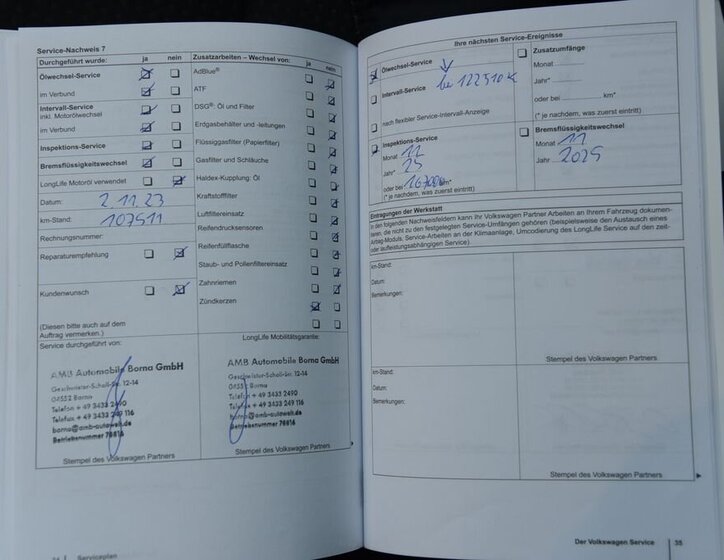 Service-Nachweis 7
Durchgeführt wurde: ja nein
Ölwechsel-Service
im Verbund
Intervall-Service
inkl. Motorölwechsel
im Verbund
Inspektions-Service
Bremsflüssigkeitswechsel
LongLife Motoröl verwendet
Datum: 2.11.23
km-Stand: 107511
Rechnungsnummer:
Reparaturempfehlung
Kundenwunsch
(Diesen bitte auch auf dem
Auftrag vermerken.)
Service durchgeführt von:
AMB Automobile Borna GmbH
Geschwister-Scholl-Str. 12-14
04552 Borna
Telefon + 49 3433 2490
Telefax + 49 3433 249 116
borna@amb-autowelt.de
Betriebsnummer 78816
Stempel des Volkswagen Partners
Zusatzarbeiten – Wechsel von: ja nein
AdBlue®
ATF
DSG®: Öl und Filter
Erdgasbehälter und -leitungen
Flüssiggasfilter (Papierfilter)
Gasfilter und Schläuche
Haldex-Kupplung: Öl
Kraftstofffilter
Luftfiltereinsatz
Reifendrucksensoren
Reifenfüllflasche
Staub- und Pollenfiltereinsatz
Zahnriemen
Zündkerzen
LongLife Mobilitätsgarantie:
AMB Automobile Borna GmbH
Geschwister-Scholl-Str. 12-14
04552 Borna
Telefon + 49 3433 2490
Telefax + 49 3433 249 116
borna@amb-autowelt.de
Betriebsnummer 78816
Stempel des Volkswagen Partners
Serviceplan
Ihre nächsten Service-Ereignisse
Ölwechsel-Service
Intervall-Service
nach flexibler Service-Intervall-Anzeige
Inspektions-Service
Monat 11
Jahr* 25
oder bei km*
(* je nachdem, was zuerst eintritt)
Zusatzumfänge
Monat
Jahr*
oder bei km*
(* je nachdem, was zuerst eintritt)
Bremsflüssigkeitswechsel
Monat 11
Jahr 2025
Eintragungen der Werkstatt
In den folgenden Nachweisfeldern kann Ihr Volkswagen Partner Arbeiten an Ihrem Fahrzeug dokumen-
tieren, die nicht zu den festgelegten Service-Umfängen gehören (beispielsweise den Austausch eines
Airbag-Moduls, Service-Arbeiten an der Klimaanlage, Umcodierung des LongLife Service auf den zeit-
oder laufleistungsabhängigen Service).
km-Stand:
Datum:
Bemerkungen:
Stempel des Volkswagen Partners
km-Stand:
Datum:
Bemerkungen:
Stempel des Volkswagen Partners
Der Volkswagen Service 35